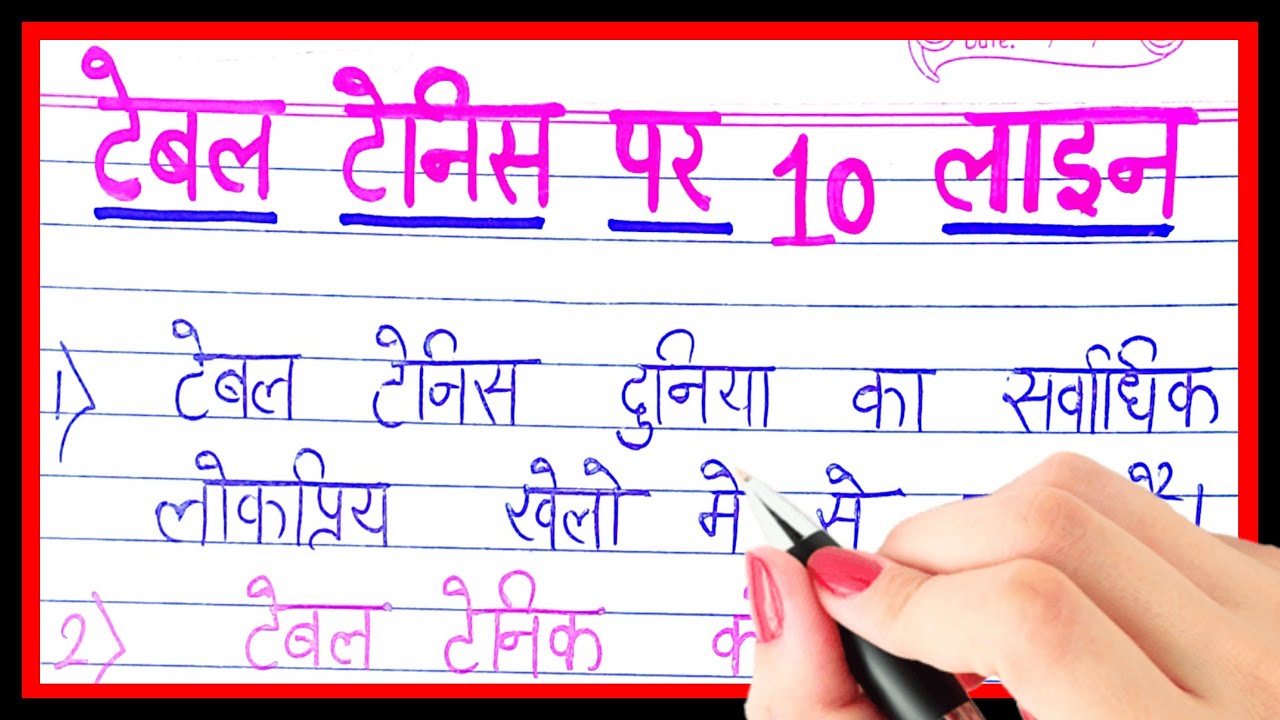 Date: / /
टेबल टेनिस पर 10 लाइन
1) टेबल टेनिस दुनिया का सर्वाधिक
लोकप्रिय खेलो मे से है।
2) टेबल टेनिक